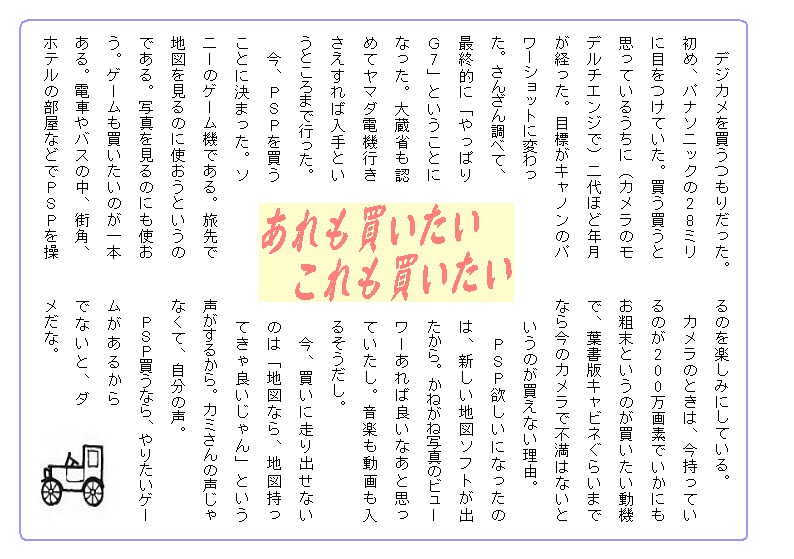 あれも買いたい
これも買いたい
デジカメを買うつもりだった。
初め、パナソニックの28ミリ
に目をつけていた。買う買うと
思っているうちに（カメラのモ
デルチエンジで）二代ほど年月
が経った。目標がキャノンのパ
ワーショットに変わっ
た。さんざん調べて、
最終的に「やっぱり
G7」ということに
なった。大蔵省も認
めてヤマダ電機行き
さえすれば入手とい
うところまで行った。
今、PSPを買う
ことに決まった。ソ
ニーのゲーム機である。旅先で
地図を見るのに使おうというの
である。写真を見るのにも使お
う。ゲームも買いたいのが一本
ある。電車やバスの中、街角、
ホテルの部屋などでPSPを操
るのを楽しみにしている。
カメラのときは、今持ってい
るのが200万画素でいかにも
お粗末というのが買いたい動機
で、葉書版キャビネぐらいまで
なら今のカメラで不満はないと
いうのが買えない理由。
PSP欲しいになったの
は、新しい地図ソフトが出
たから。かねがね写真のビュー
ワーあれば良いなあと思っ
ていたし。音楽も動画も入
るそうだし。
今、買いに走り出せない
のは「地図なら、地図持っ
てきゃ良いじゃん」という
声がするから。カミさんの声じゃ
なくて、自分の声。
PSP買うなら、やりたいゲー
ムがあるから
でないと、ダ
メだな。